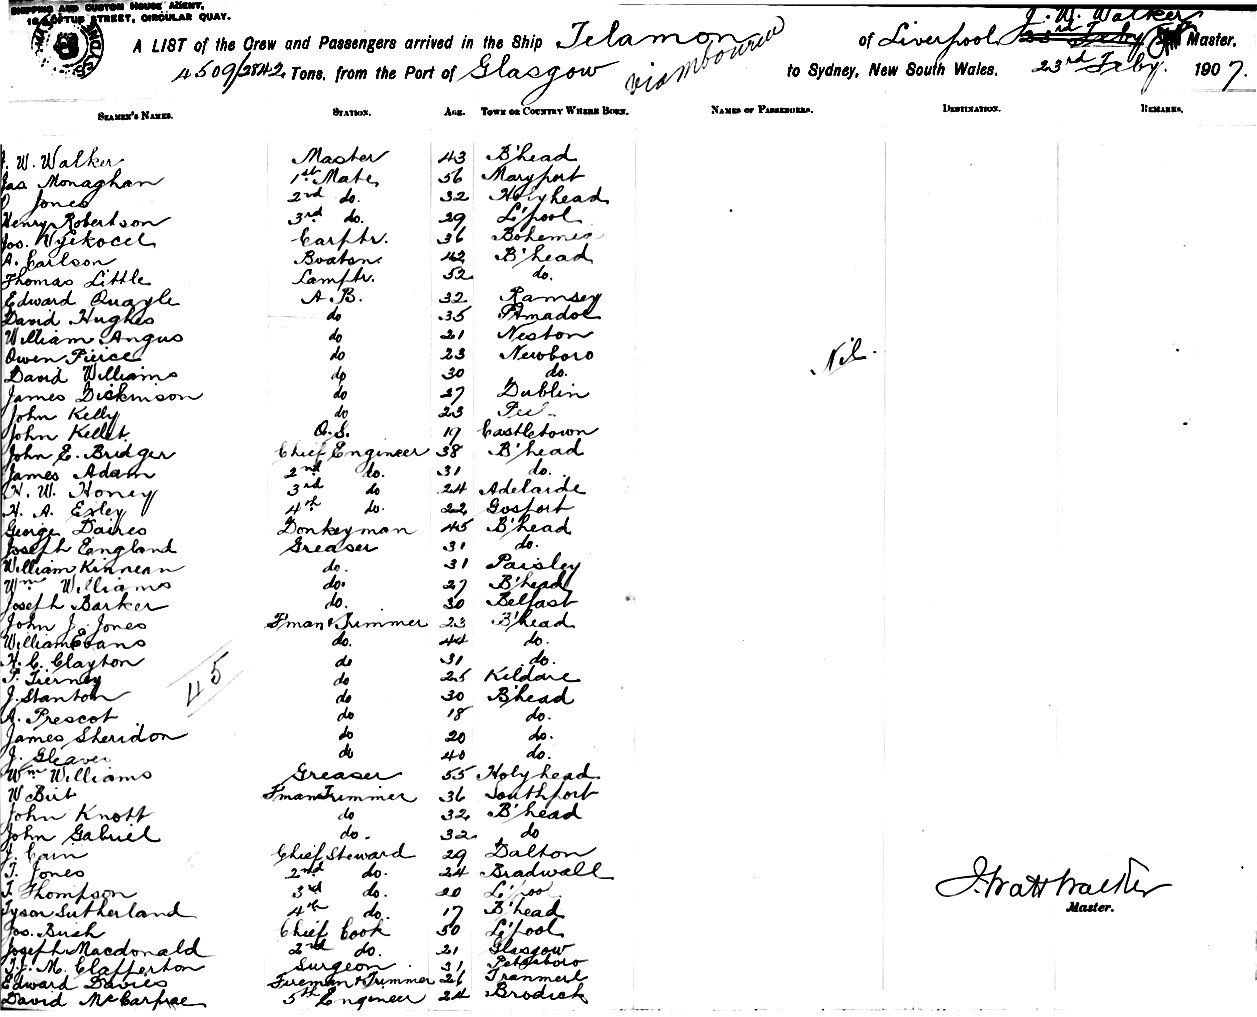 SHIPPING AND CUSTOM HOUSE AGENT,
16 LOFTUS STREET, CIRCULAR QUAY.
A LIST of the Crew and Passengers arrived in the Ship Telamon of Liverpool J. W. Walker Master.
4509/2842 Tons, from the Port of Glasgow via to Sydney, New South Wales, 23rd Feby. 1907.
SEAMEN'S NAMES. STATION. AGE. TOWN OR COUNTRY WHERE BORN. NAMES OF PASSENGERS. DESTINATION. REMARKS.
J. W. Walker Master 43 B'head
Jas Monaghan 1st Mate 56 Maryport
Jones 2nd do. 32 Holyhead
Henry Robertson 3rd do. 29 L'pool
Jos. Carptr. 36 Bohemia
A. Carlson Boatsn. 42 B'head
Thomas Little Lamptr. 52 do.
Edward Quayle A.B. 32 Ramsey
David Hughes do 35 P'madoc
William Angus do 21 Neston
Owen Pierce do 23 Newboro
Nil.
David Williams do 30 do.
James Dickinson do 27 Dublin
John Kelly do 23 Peel
John Kellet O.S. 19 Castletown
John E. Bridger Chief Engineer 38 B'head
James Adam 2nd do. 31 do.
H. W. Honey 3rd do 24 Adelaide
H. A. Exley 4th do. 22 Gosport
George Davies Donkeyman 45 B'head
Joseph England Greaser 31 do.
William Kinnean do. 31 Paisley
Wm Williams do. 27 B'head
Joseph Barker do. 30 Belfast
John J. Jones F'man & Trimmer 23 B'head
William Evans do. 44 do.
H. C. Clayton do 31 do.
T. Tierney do 25 Kildare
45
J. Stanton do 30 B'head
A. Prescot do 18 do.
James Sheridon do 20 do.
J. Gleaver do 40 do.
Wm Williams Greaser 55 Holyhead
W Birt F'man Trimmer 36 Southport
John Knott do 32 B'head
John Gabriel do. 32 do
J. Cain Chief Steward 29 Dalton
T. Jones 2nd do. 24 Bradwall
T. Thompson 3rd do. 20 L'poo
Tyson Sutherland 4th do. 17 B'head
Jos. Bush Chief Cook 50 L'pool
Joseph Macdonald 2nd do. 21 Glasgow
T. J. M. Clafferton Surgeon 31 Petersboro
Edward Davies Fireman & Trimmer 26 Tranmere
David McCarfrae 5th Engineer 24 Brodick
J. Watt Walker
Master.